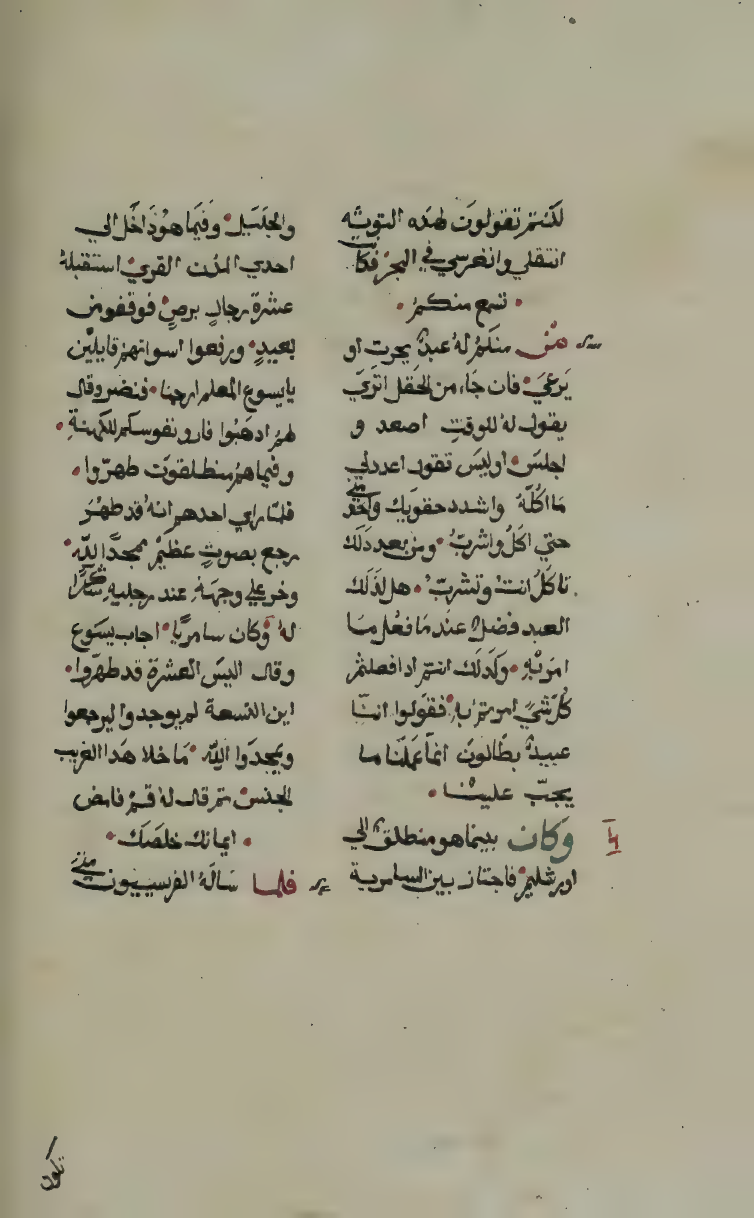 لكنتم تقولون لهذه التوته
انتقلي وانغرسي في البحر فكانت
تسمع منكم
من منكم له عبد يحرت او
يرعي فان جاء من الحقل اتري
يقول له للوقت اصعد و
اجلس اوليس تقول اعددلي
ما اكله واشدد حقويك واخدمني
حتي اكل واشرب ومن بعد دلك
تاكل انت وتشرب هل لذلك
العبد فضل عند ما فعل ما
امر به وكدلك انتم ادا فعلتم
كل شي امرتم به فقولوا اننا
عبيد بطالون انما عملنا ما
يجب علينا
وكان بينما هو منطلق الي
اورشليم فاجتاز بين السامرية
والجليل وفيما هو داخل الي
احدي المدن القري استقبله
عشرة رجال برص فوقفو من
بعيد ورفعوا اسواتهم قايلين
يايسوع المعلم ارحمنا فنضر وقال
لهم ادهبوا فارو نفوسكم للكهنة
وفيما هم منطلقون طهروا
فلما راي احدهم انه قد طهر
رجع بصوت عظيم ممجدا لله
وخر علي وجهه عند رجليه شكرا
له وكان سامريا اجاب يسوع
وقال اليس العشرة قد طهروا
اين التسعة لم يوجدوا ليرجعوا
ويمجدوا الله ما خلا هدا الغريب
الجنس تم قال له قم فامض
ايمانك خلصك
فلما ساله الفريسييون متي
تكون